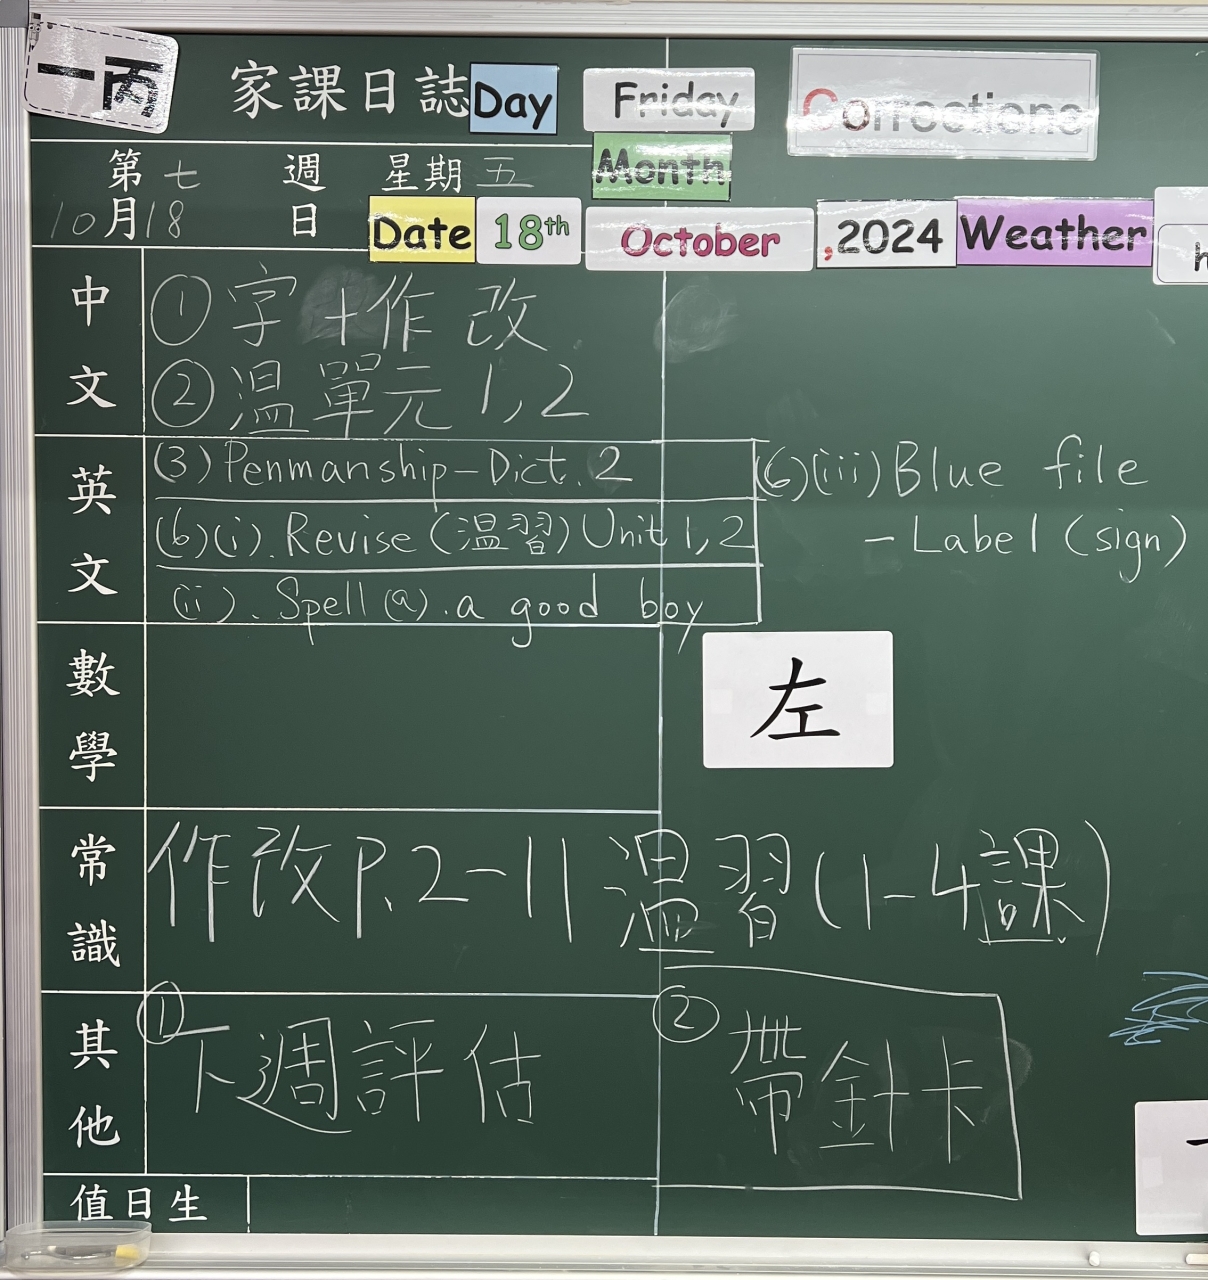 一丙
家課日誌 Day Friday Corrections
第七週 星期五 Month
10月18日 Date 18th October ,2024 Weather
中文
① 字+作 改
② 溫單元 1,2
英文
(3) Penmanship-Dict. 2
(6)(i). Revise (溫習) Unit 1, 2
(ii). Spell (a). a good boy
(6)(iii) Blue file
- Label (sign)
數學
左
常識
作改P.2-11 溫習(1-4課)
其他
① 下週評估
② 帶針卡
值日生